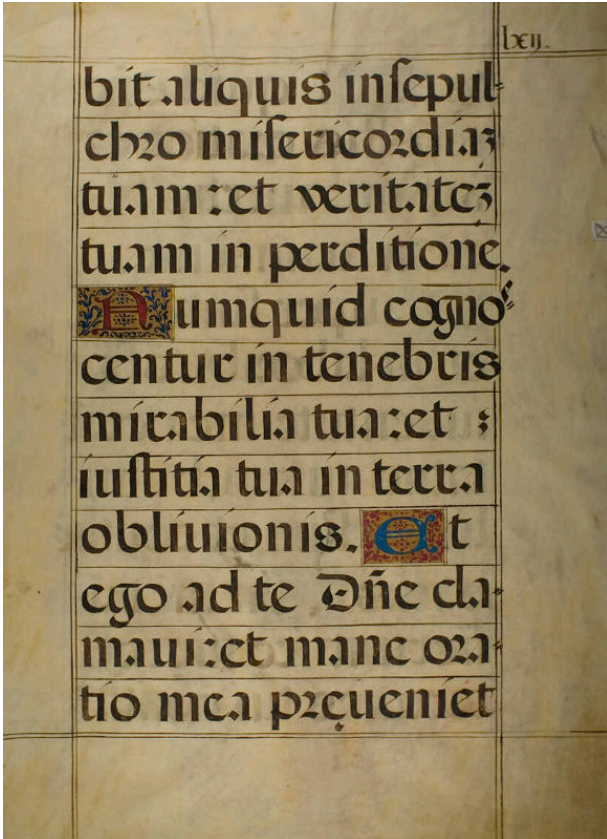 lxij.
bit aliquis inſepul-
chro miſericordiaʒ
tuam: et veritateʒ
tuam in perditione.
Numquid cognoſ-
centur in tenebris
mirabilia tua: et
iuſtitia tua in terra
obliuionis. Et
ego ad te Dñe cla-
maui: et mane ora-
tio mea pręueniet